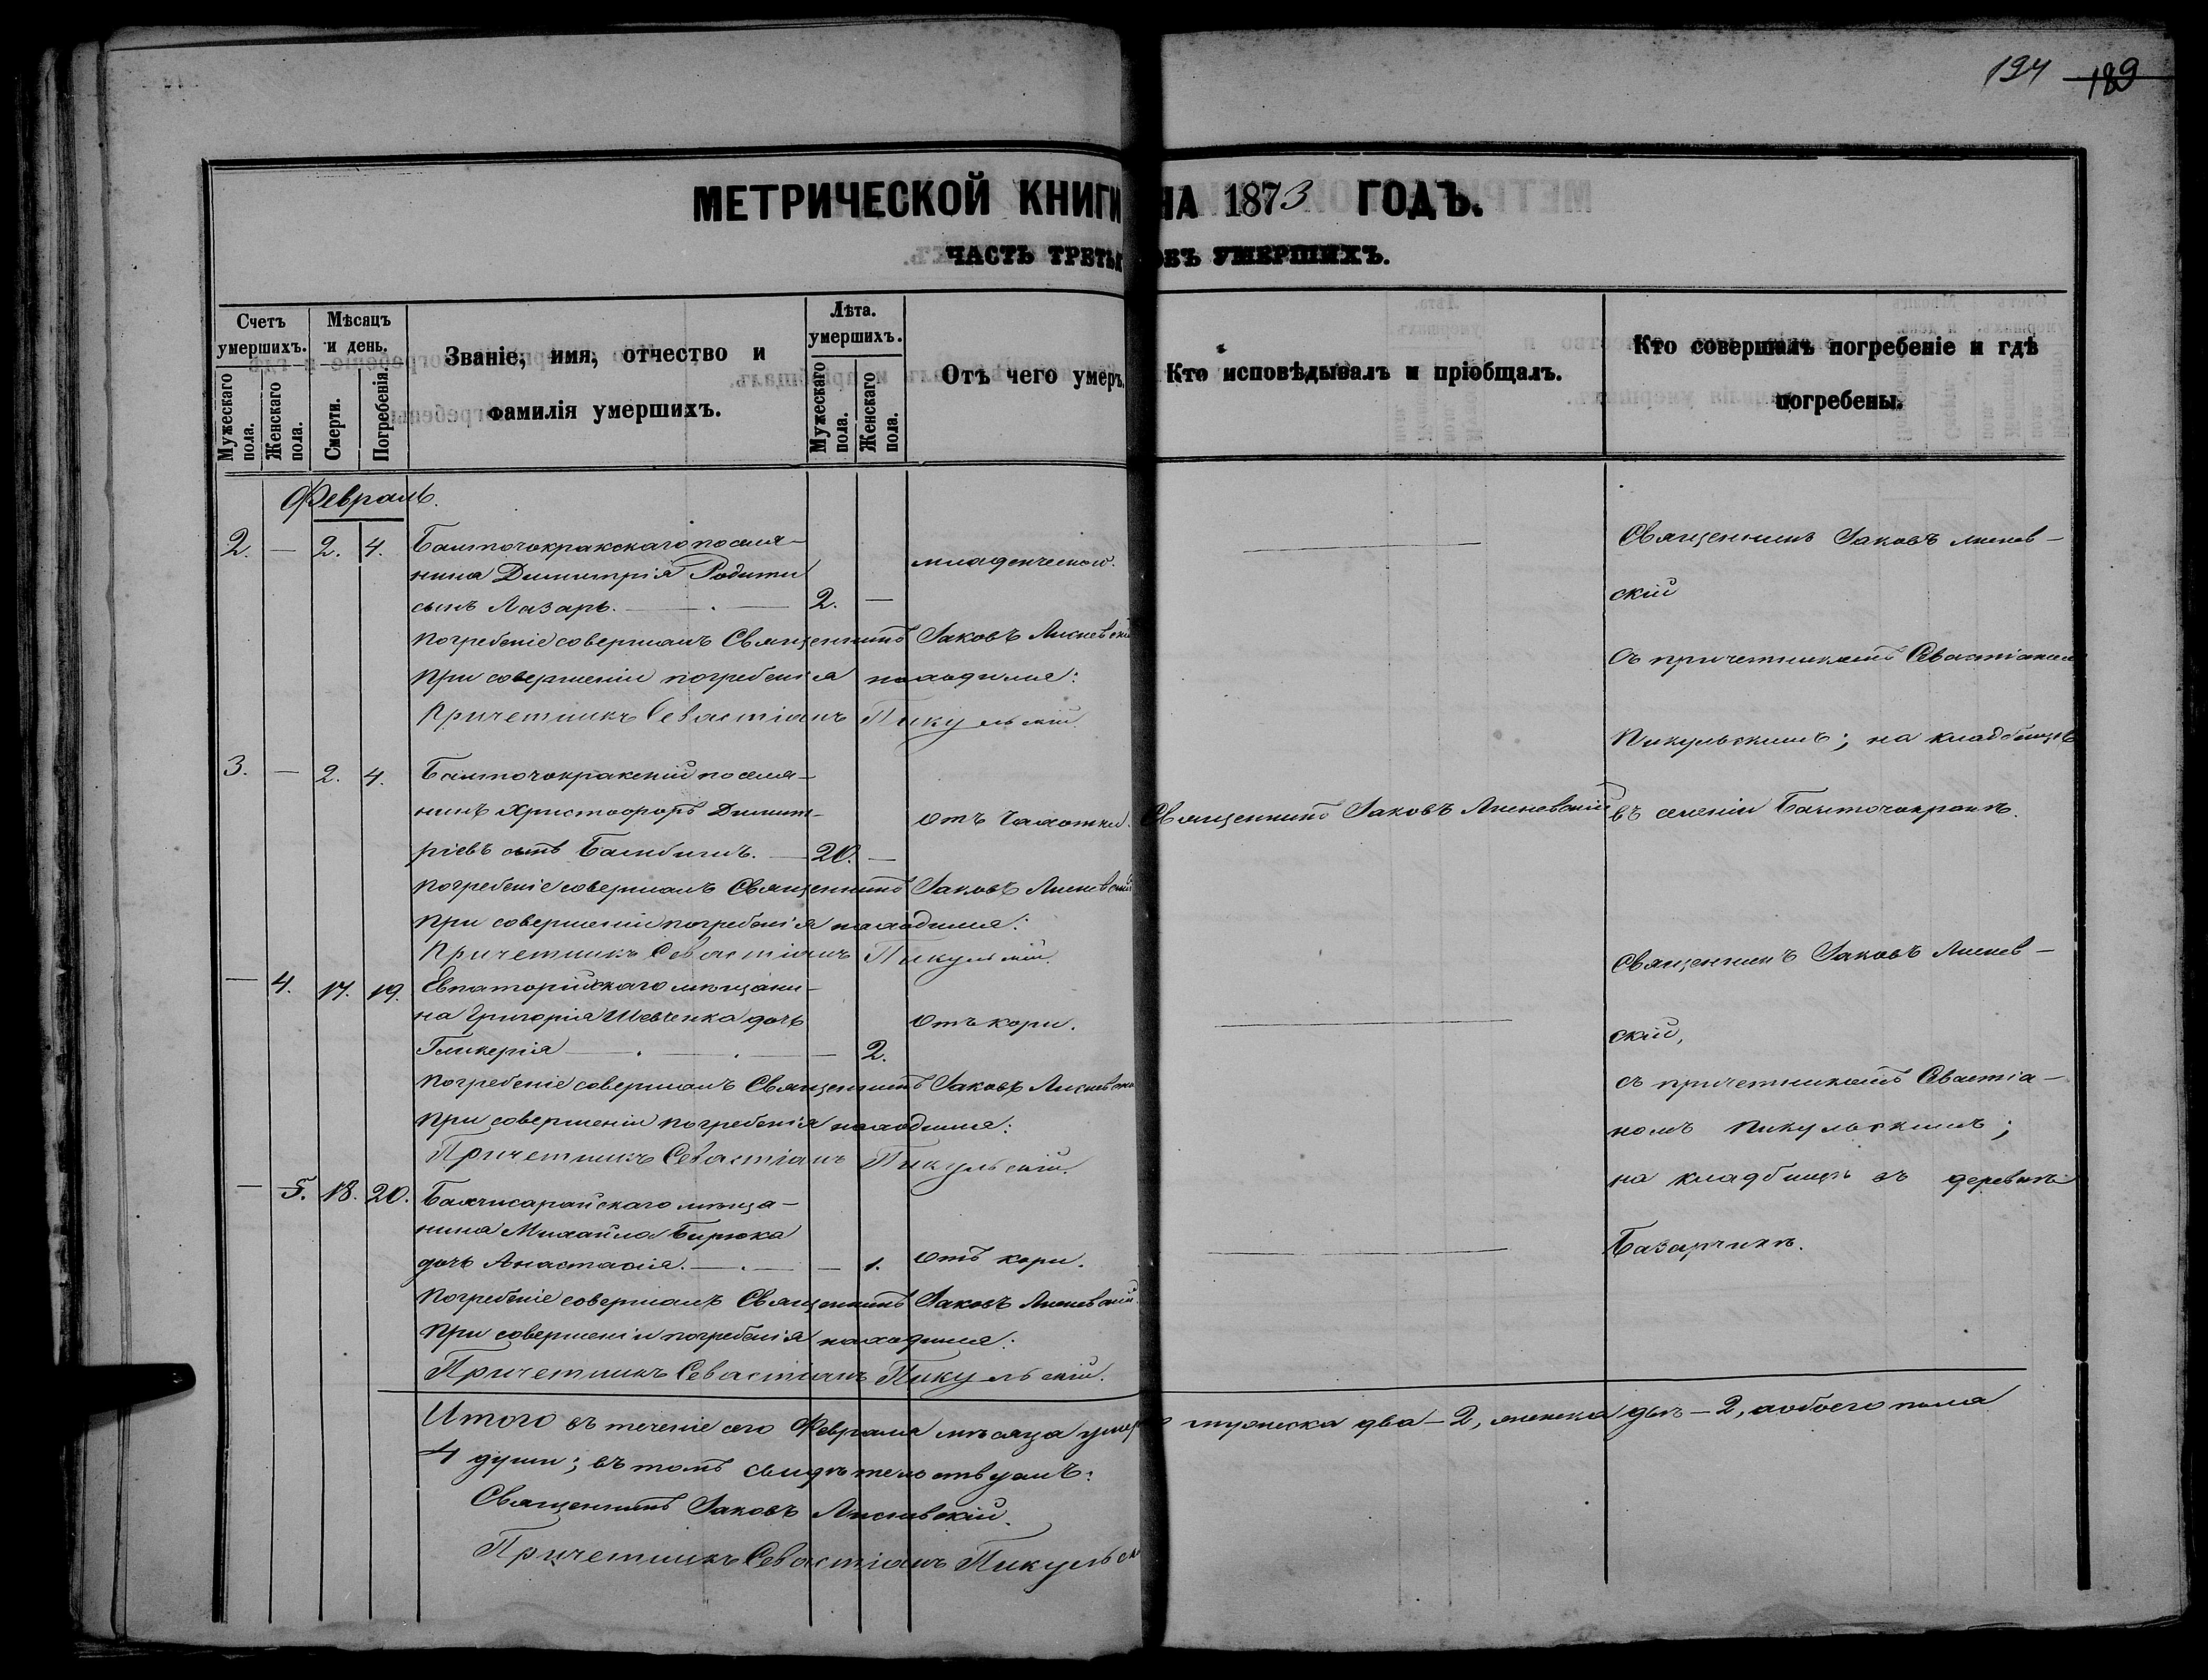 194 189
МЕТРИЧЕСКОЙ КНИГИ НА 1873 ГОДЪ.
ЧАСТЬ ТРЕТЬЯ ОБЪ УМЕРШИХЪ.
Счетъ умершихъ.
Мужескаго пола.
Женскаго пола.
Мѣсяцъ и день.
Смерти.
Погребенія.
Званіе, имя, отчество и
фамилія умершихъ.
Лѣта. умершихъ.
Мужескаго пола.
Женскаго пола.
Отъ чего умеръ.
Кто исповѣдывалъ и пріобщалъ.
Кто совершалъ погребеніе и гдѣ
погребены.
Февраль.
2. — 2. 4. Башточокракскаго поселя-
нина Димитрія Родити
сынъ Лазарь. — 2. —
младенческой.
Погребеніе совершалъ Священникъ Іаковъ Лисневскій
При совершеніи погребенія находился:
Причетникъ Севастіанъ Пикульскій.
Священникъ Іаковъ Лиснев-
скій
Съ причетникомъ Севастіаномъ
Пикульскимъ; на кладбищѣ
въ селеніи Башточокракъ.
3. — 2. 4. Башточокракскій поселя-
нинъ Христофоръ Димит-
ріевъ сынъ — 20. —
отъ чахотки.
Священникъ Іаковъ Лисневскій
Погребеніе совершалъ Священникъ Іаковъ Лисневскій
При совершеніи погребенія находился:
Причетникъ Севастіанъ Пикульскій.
— 4. 17. 19. Евпаторійскаго мѣщани-
на Григорія Шевченка дочь
Гликерія — — 2.
отъ кори.
Погребеніе совершалъ Священникъ Іаковъ Лисневскій
При совершеніи погребенія находился:
Причетникъ Севастіанъ Пикульскій.
Священникъ Іаковъ Лиснев-
скій,
съ причетникомъ Севастіа-
номъ Пикульскимъ;
на кладбищѣ въ деревнѣ
Базарчикъ.
— 5. 18. 20. Бахчисарайскаго мѣща-
нина Михаила Бирюка
дочь Анастасія. — — 1.
отъ кори.
Погребеніе совершалъ Священникъ Іаковъ Лисневскій.
При совершеніи погребенія находился:
Причетникъ Севастіанъ Пикульскій.
Итого въ теченіе сего Февраля мѣсяца умерло мужеска два — 2, женска двѣ — 2, а обоего пола
4 души; въ томъ свидѣтельствуемъ:
Священникъ Іаковъ Лисневскій.
Причетникъ Севастіанъ Пикульскій